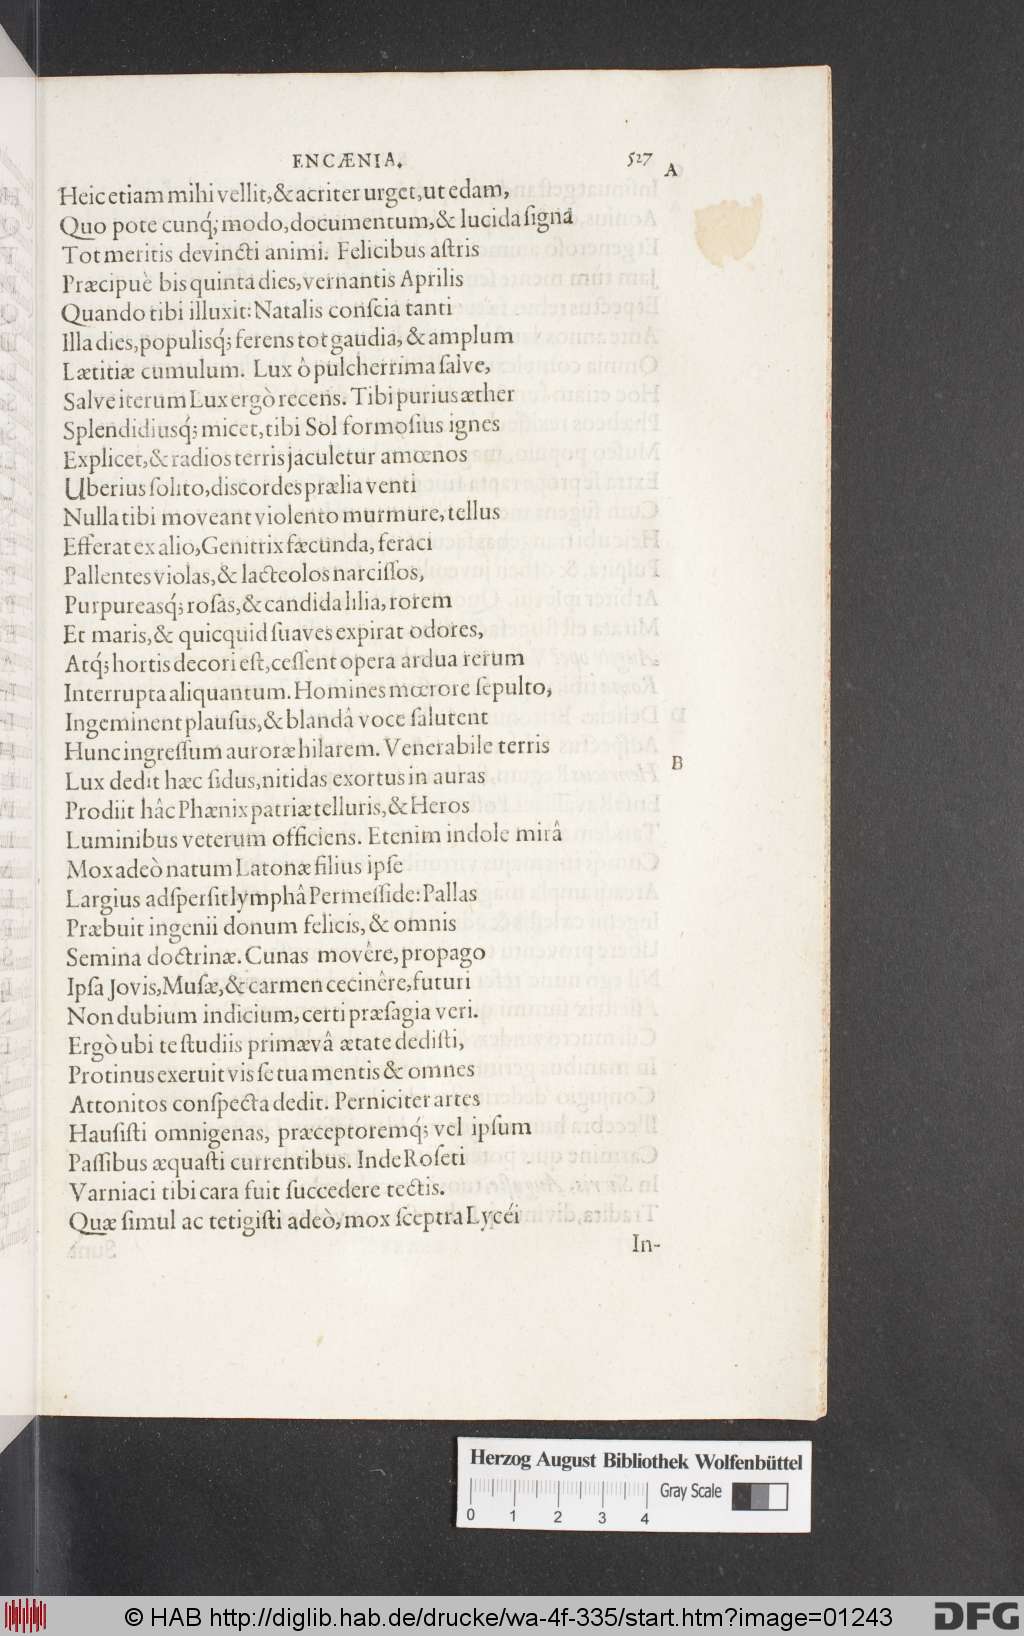 ENCÆNIA. 527
A
Heic etiam mihi vellit, & acriter urget, ut edam,
Quo pote cunq́; modo, documentum, & lucida signa
Tot meritis devincti animi. Felicibus astris
Præcipuè bis quinta dies, vernantis Aprilis
Quando tibi illuxit: Natalis conscia tanti
Illa dies, populisq́; ferens tot gaudia, & amplum
Lætitiæ cumulum. Lux ô pulcherrima salve,
Salve iterum Lux ergò recens. Tibi purius æther
Splendidiusq́; micet, tibi Sol formosius ignes
Explicet, & radios terris jaculetur amœnos
Uberius solito, discordes prælia venti
Nulla tibi moveant violento murmure, tellus
Efferat ex alio, Genitrix fæcunda, feraci
Pallentes violas, & lacteolos narcissos,
Purpureasq́; rosas, & candida lilia, rorem
Et maris, & quicquid suaves expirat odores,
Atq́; hortis decori est, cessent opera ardua rerum
Interrupta aliquantum. Homines mœrore sepulto,
Ingeminent plausus, & blandâ voce salutent
Hunc ingressum auroræ hilarem. Venerabile terris
B
Lux dedit hæc sidus, nitidas exortus in auras
Prodiit hâc Phænix patriæ telluris, & Heros
Luminibus veterum officiens. Etenim indole mirâ
Mox adeò natum Latonæ filius ipse
Largius adspersit lymphâ Permesside: Pallas
Præbuit ingenii donum felicis, & omnis
Semina doctrinæ. Cunas movêre, propago
Ipsa Jovis, Musæ, & carmen cecinêre, futuri
Non dubium indicium, certi præsagia veri.
Ergò ubi te studiis primævâ ætate dedisti,
Protinus exeruit vis se tua mentis & omnes
Attonitos conspecta dedit. Perniciter artes
Hausisti omnigenas, præceptoremq́; vel ipsum
Passibus æquasti currentibus. Inde Roseti
Varniaci tibi cara fuit succedere tectis.
Quæ simul ac tetigisti adeò, mox sceptra Lycéi
In-
Herzog August Bibliothek Wolfenbüttel
Gray Scale
0 1 2 3 4
© HAB http://diglib.hab.de/drucke/wa-4f-335/start.htm?image=01243
DFG